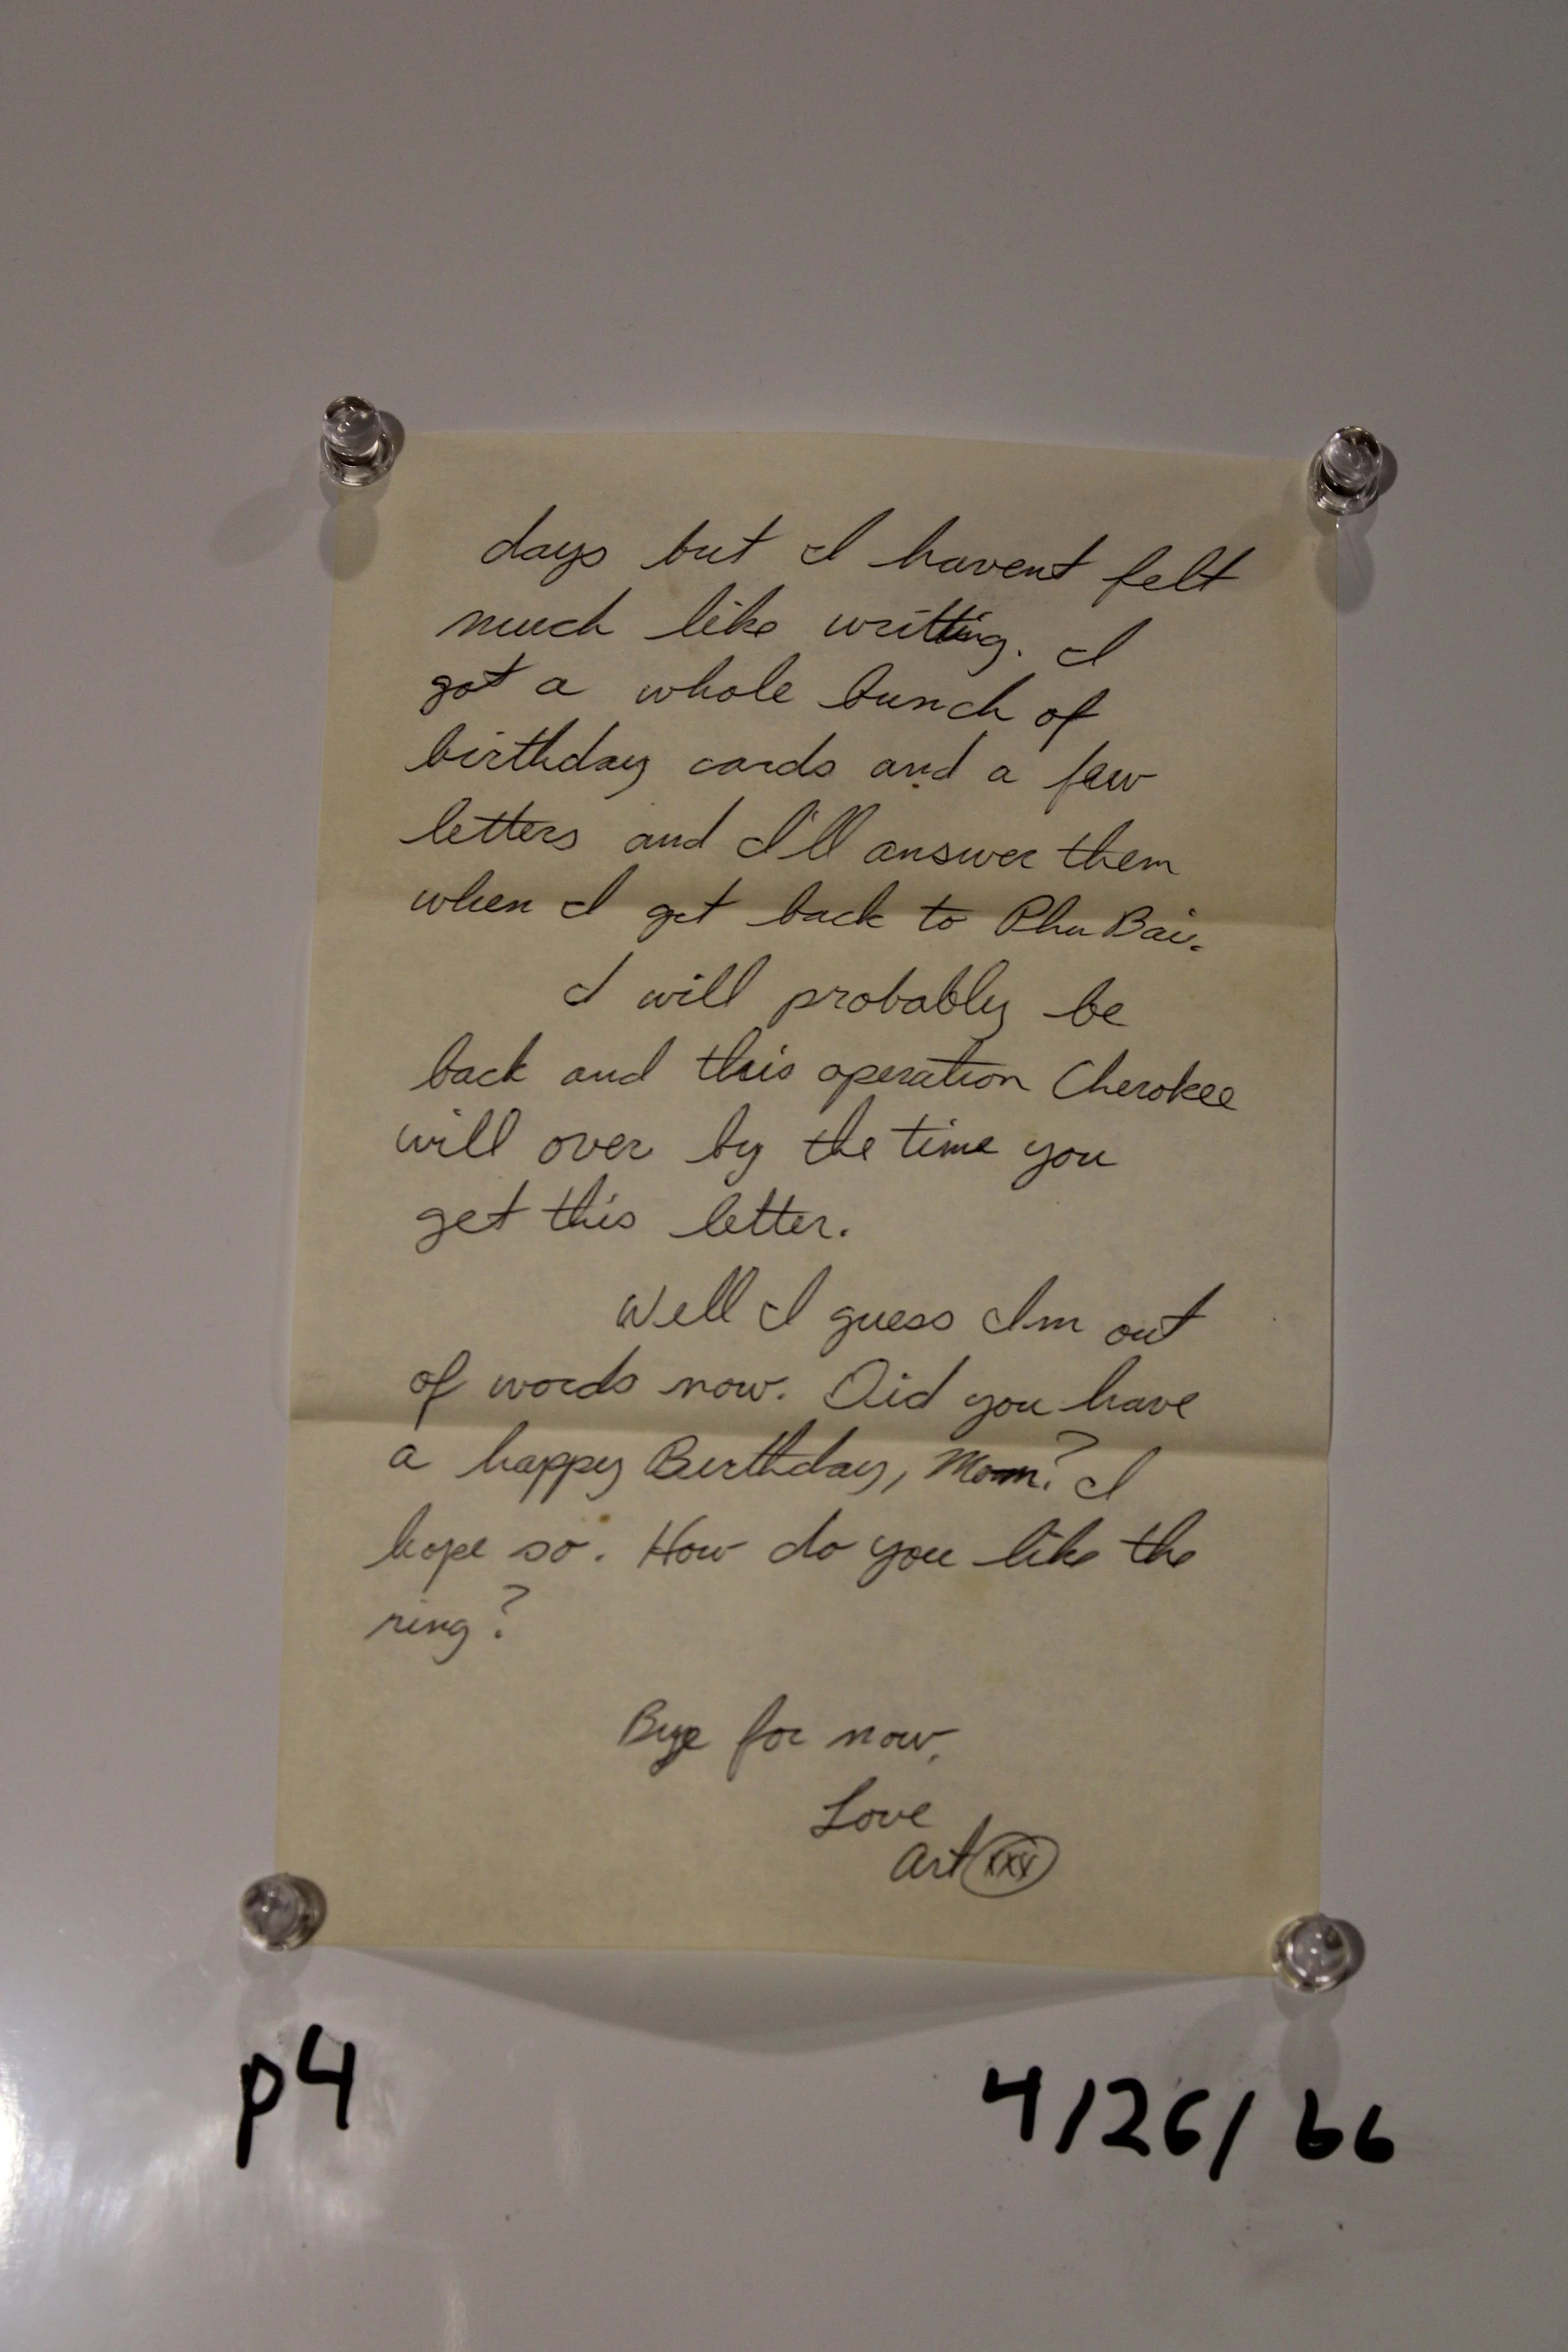 days but I havent felt
much like writting. I
got a whole bunch of
birthday cards and a few
letters and I'll answer them
when I get back to Phu Bai.
I will probably be
back and this operation Cherokee
will over by the time you
get this letter.
Well I guess Im out
of words now. Did you have
a happy Birthday, Mom? I
hope so. How do you like the
ring?
Bye for now,
Love
Art xxx
p4
4/26/66